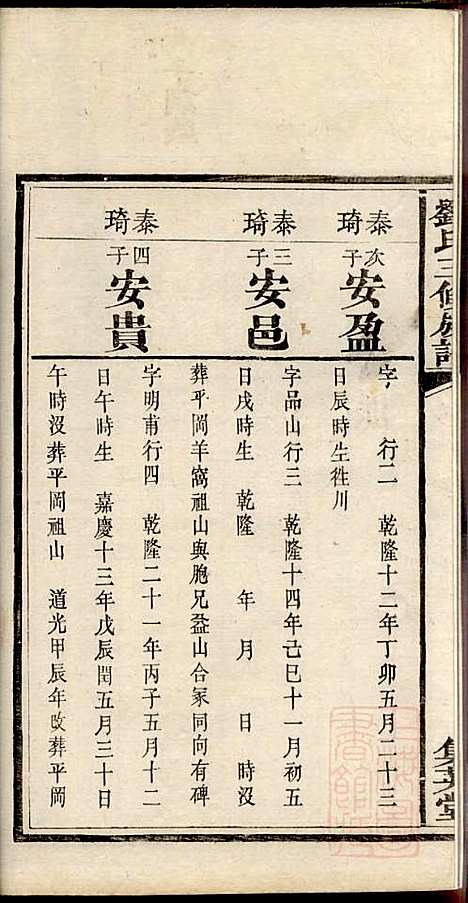 劉氏三修族譜
泰琦
次子
安盈
字　行二　乾隆十二年丁卯五月二十三
日辰時生徃川
泰琦
三子
安邑
字品山行三　乾隆十四年己巳十一月初五
日戌時生　乾隆　年　月　日　時沒
葬平岡羊窩祖山與胞兄盈山合冢同向有碑
泰琦
四子
安貴
字明甫行四　乾隆二十一年丙子五月十二
日午時生　嘉慶十三年戊辰閏五月三十日
午時沒葬平岡祖山　道光甲辰年改葬平岡